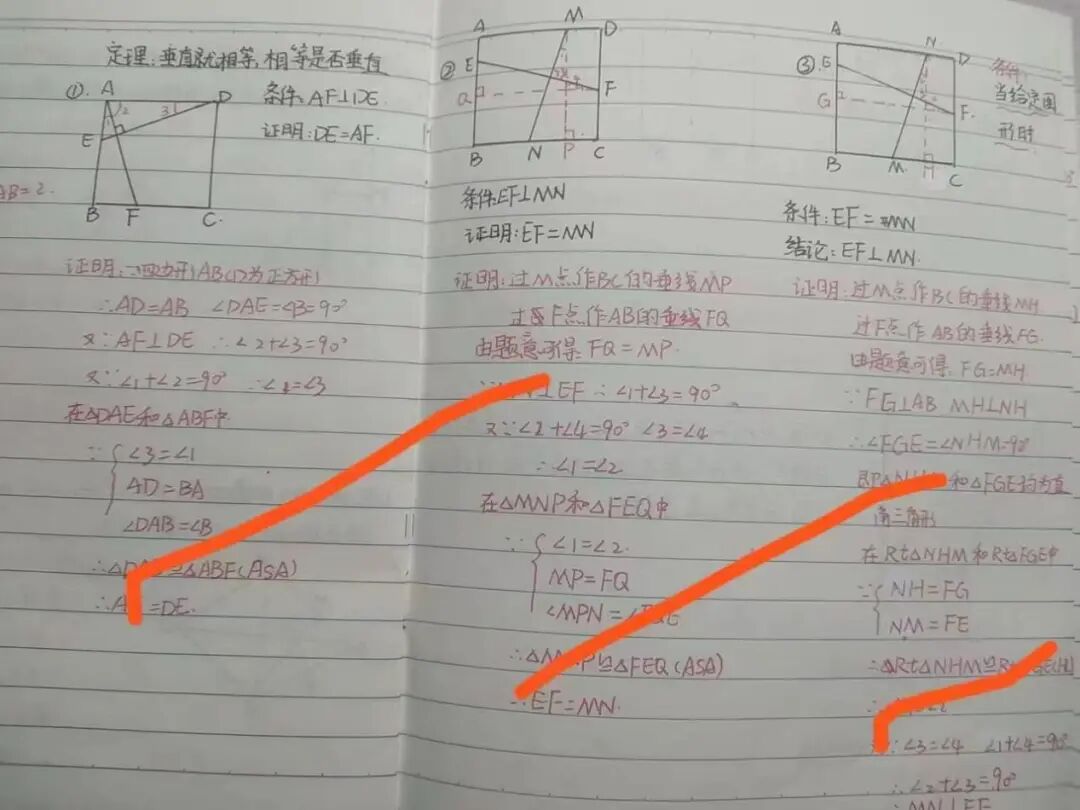 定理:垂直就相等,相等是否垂直
①.
A
D
2
3
1
E
B
F
C.
AB=2.
条件:AF⊥DE.
证明:DE=AF.
∴AD=AB ∠DAE=∠B=90°
又∵AF⊥DE ∴∠2+∠3=90°
又∵∠1+∠2=90° ∴∠1=∠3
在△DAE和△ABF中
∵ ∠3=∠1
AD=BA
∠DAB=∠B
≌△ABF(ASA)
=DE.
②
A
M
D
E
F
Q
B
N
P
C
条件:EF⊥MN
证明:EF=MN
证明:过M点作BC的垂线MP
过F点作AB的垂线FQ
由题意可得:FQ=MP.
⊥EF ∴∠1+∠3=90°
又∵∠2+∠4=90° ∠3=∠4
∴∠1=∠2
在△MNP和△FEQ中
∵ ∠1=∠2.
MP=FQ
∠MPN=
≌△FEQ(ASA)
∴EF=MN.
③.
A
N
D
E
G
F.
B
M
H
C
条件:
当给定图
形时
条件:EF=MN
结论:EF⊥MN.
证明:过M点作BC的垂线MH
过F点作AB的垂线FG.
由题意可得:FG=MH.
∵FG⊥AB MH⊥NH
∴∠FGE=∠NHM=90°
和△FGE均为直
角三角形
在Rt△NHM和Rt△FGE中
∵ NH=FG
NM=FE
∴△Rt△NHM≌
∠3=∠4 ∠1+∠4=90°
∴∠2+∠3=90°
∴MN⊥EF